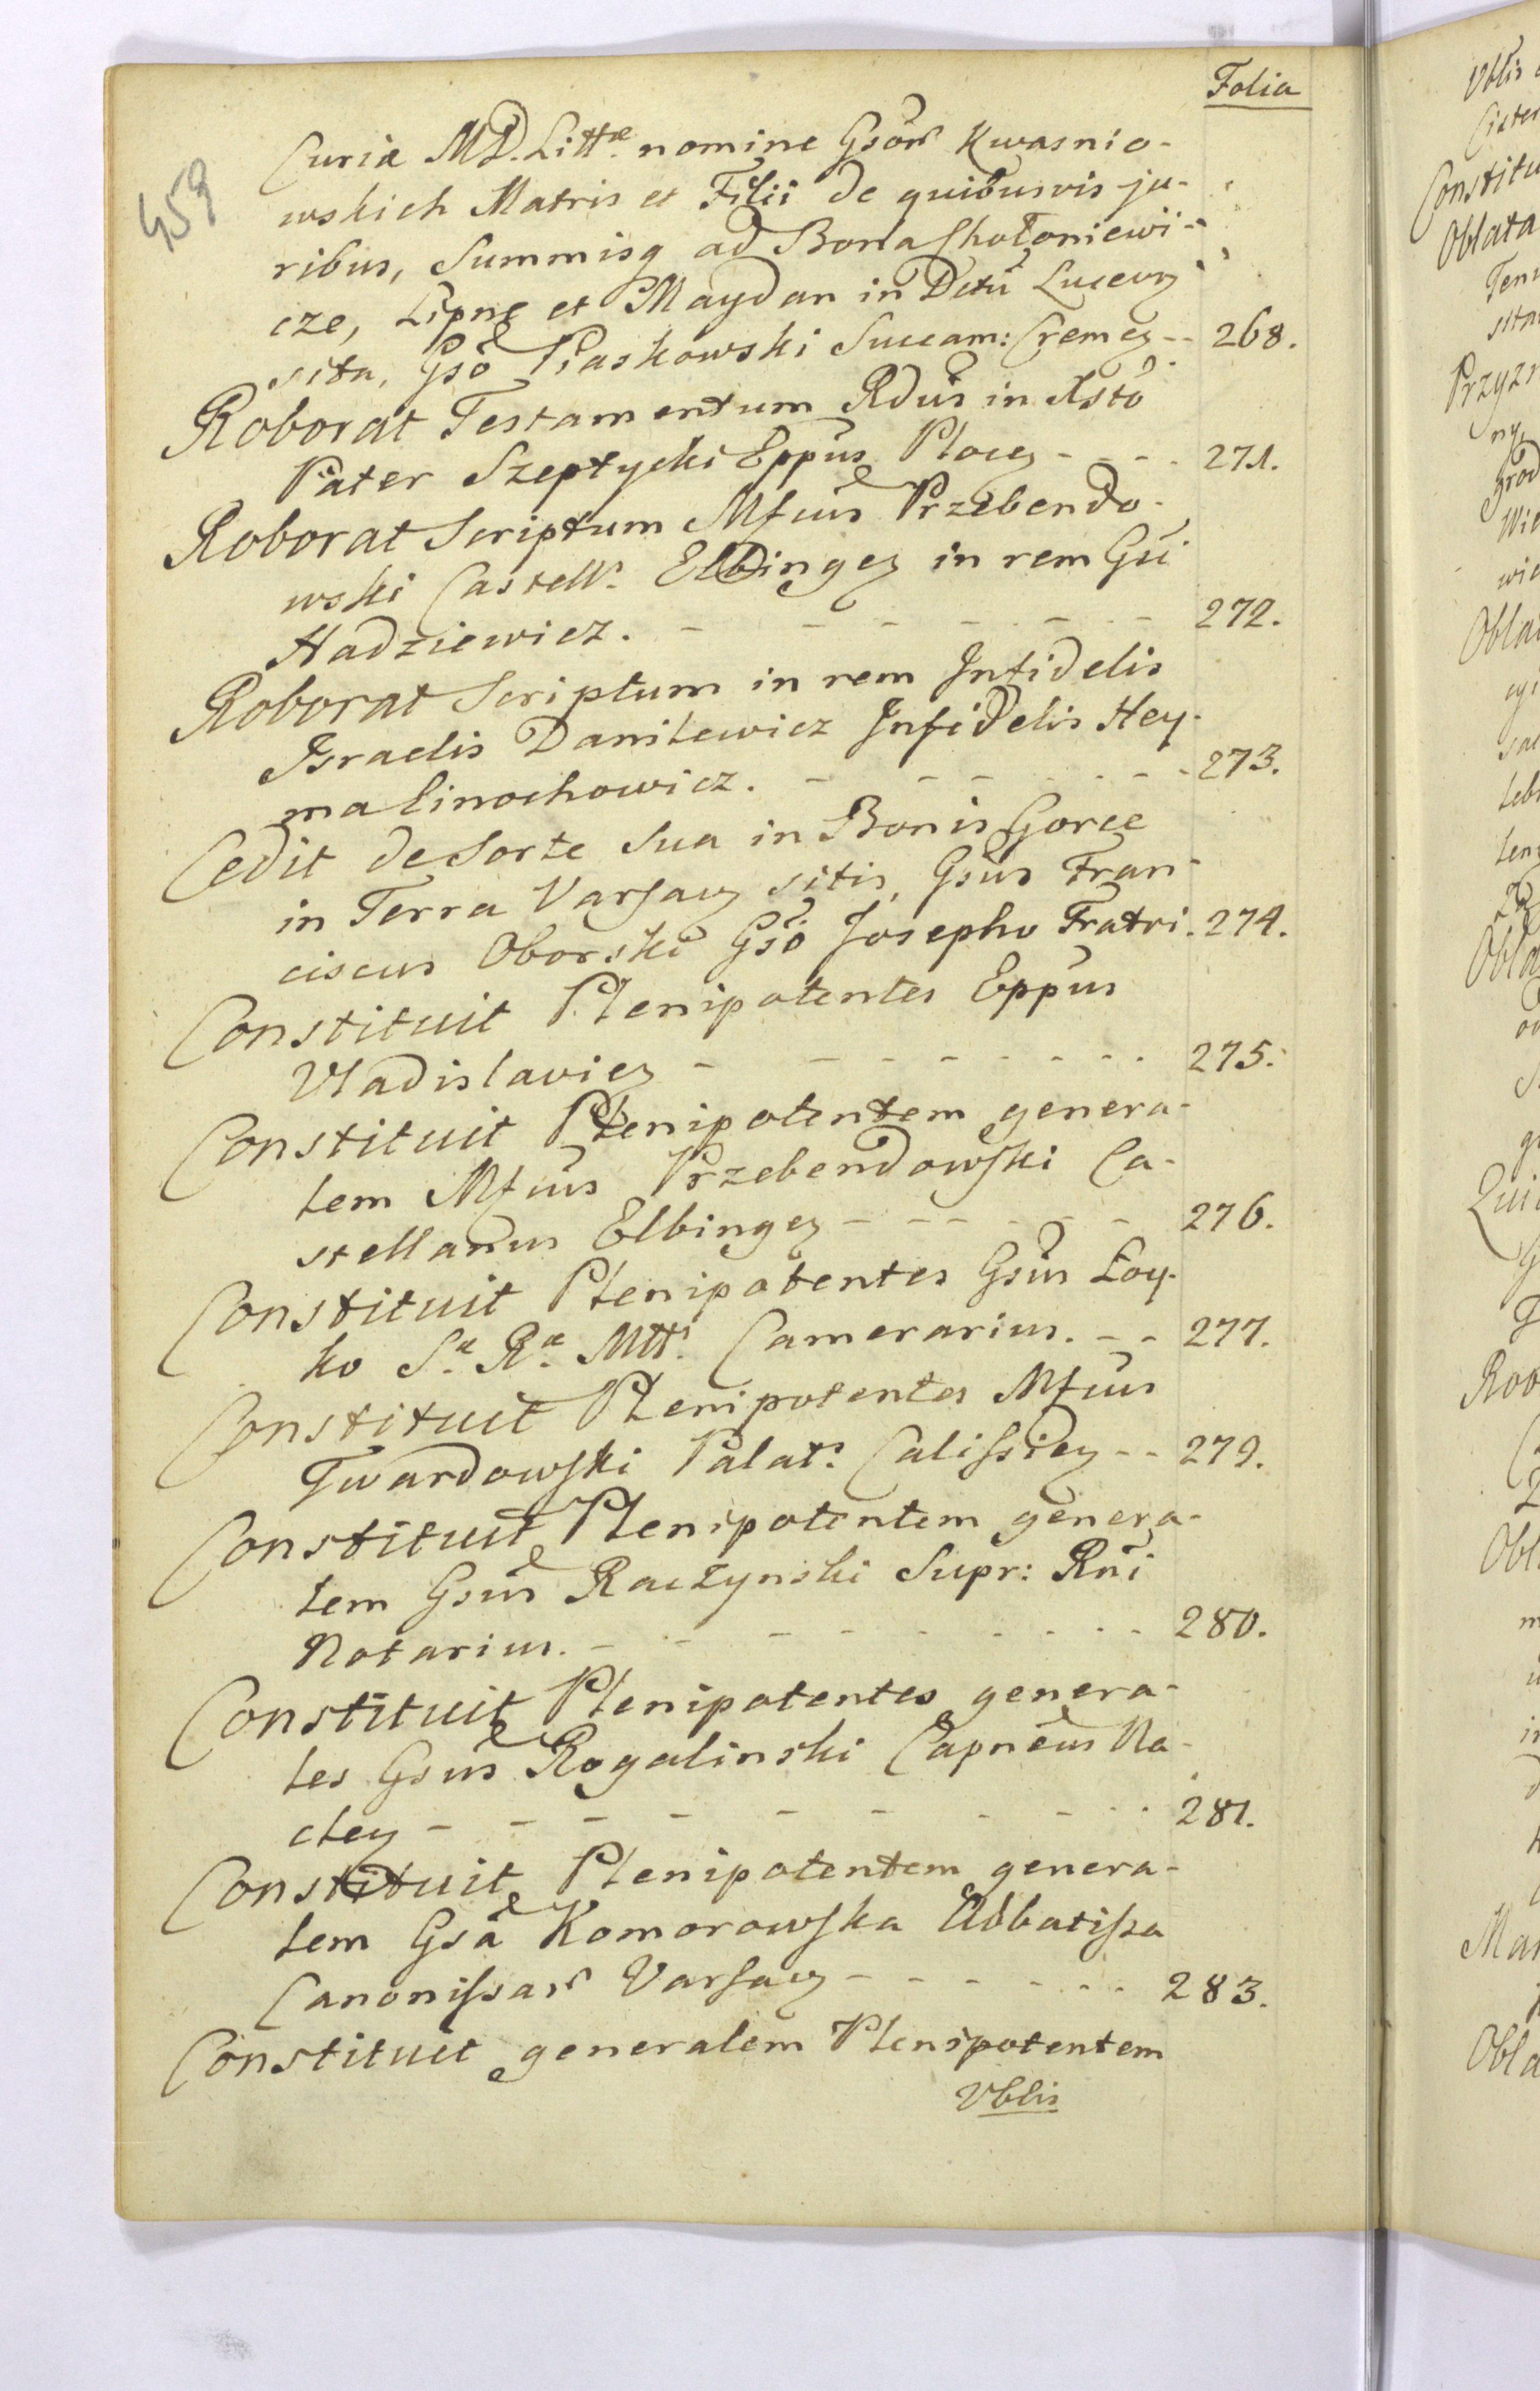 Folia
459
Curiæ M.D. Littæ. nomine Gsōr Kwasnio-
wskich Matris et Filii de quibusvis ju-
ribus, Summisq ad Bona Chołoniewi-
cze, Lipne et Maydan in Dctu Luceorz
sita, Gsō Piaskowski Succam: Cremez -- 268.
Roborat Testamentum Rdūs in Xsto
Pater Szeptycki Eppūs Plocez - - - - 271.
Roborat Scriptum Mfcūs Przebendo-
wski Castells. Elbingez in rem Gsi
Hadziewicz. - - - - - - - 272.
Roborat Scriptum in rem Infidelis
Israelis Danilewicz Infidelis Hey-
malinochowicz. - - - - - - - 273.
Cedit de Sorte Sua in Bonis Gorce
in Terra Varsavz sitis, Gsūs Fran-
ciscus Oborski Gsō Josepho Fratri. 274.
Constituit Plenipotentes Eppūs
Vladislaviez - - - - - - - - 275.
Constituit Plenipotentem genera-
lem Mfcūs Przebendowski Ca-
stellanus Elbingez - - - - - - 276.
Constituit Plenipotentes Gsūs Łoy-
ko Sæ. Ræ. Mtti. Camerarius. - - 277.
Constituit Plenipotentes Mfcūs
Twardowski Palats. Calissiez - - 279.
Constituit Plenipotentem genera-
lem Gsūs Raczynski Supr: Rni
Notarius. - - - - - - - - 280.
Constituit Plenipotentes genera-
les Gsūs Rogalinski Capnēus Na-
clez - - - - - - - - - 281.
Constituit Plenipotentem genera-
lem Gsā Komorowska Abbatissa
Canonissar Varsavz - - - - - - 283.
Constituit generalem Plenipotentem
Vblis